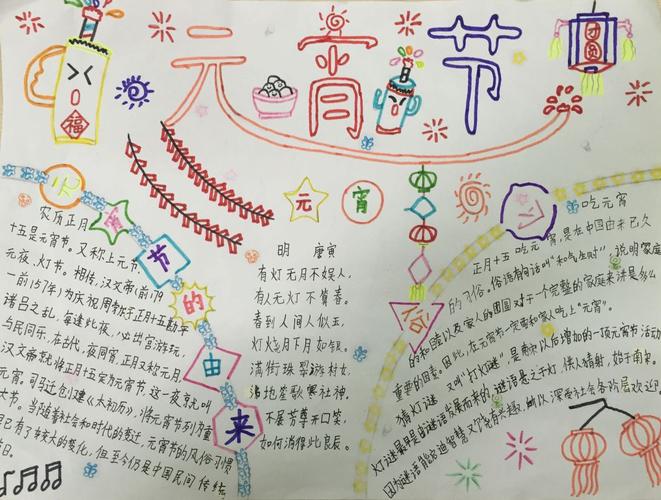 元宵节
福
团圆
元宵节的由来
农历正月
十五是元宵节。又称上元节,
元夜、灯节。相传,汉文帝(前179
—前157年)为庆祝周勃于正月十五勘平
诸吕之乱,每逢此夜,必出宫游玩,
与民同乐,在古代,夜同宵,正月又称元月,
汉文帝就将正月十五定为元宵节,这一夜就叫
元宵。司马迁创建《太初历》,将元宵节列为重
大节。当随着社会和时代的变迁,元宵节的风俗习惯
已有了较大的变化,但至今仍是中国民间传统
节日。
元宵
明 唐寅
有灯无月不娱人,
有人无灯不算春。
春到人间人似玉,
灯烧月下月如银。
满街珠翠游村女,
沸地笙歌赛社神。
不展芳尊开口笑,
如何消得此良辰。
俗
吃元宵
正月十五吃元宵,是在中国由来已久
的习俗。俗语有句话叫“和气生财”,说明家庭
的和睦以及家人的团圆对于一个完整的家庭来讲是多么
重要的因素。因此,在元宵节一定要和家人吃上“元宵”。
猜灯谜 又叫“打灯谜”是
后增加的一项元宵节活动
灯谜最早是由谜语发展而来的
谜语悬之于灯,供人猜射,始于南宋。
因为谜语能启迪智慧又饶有兴趣,所以深受社会各阶层欢迎